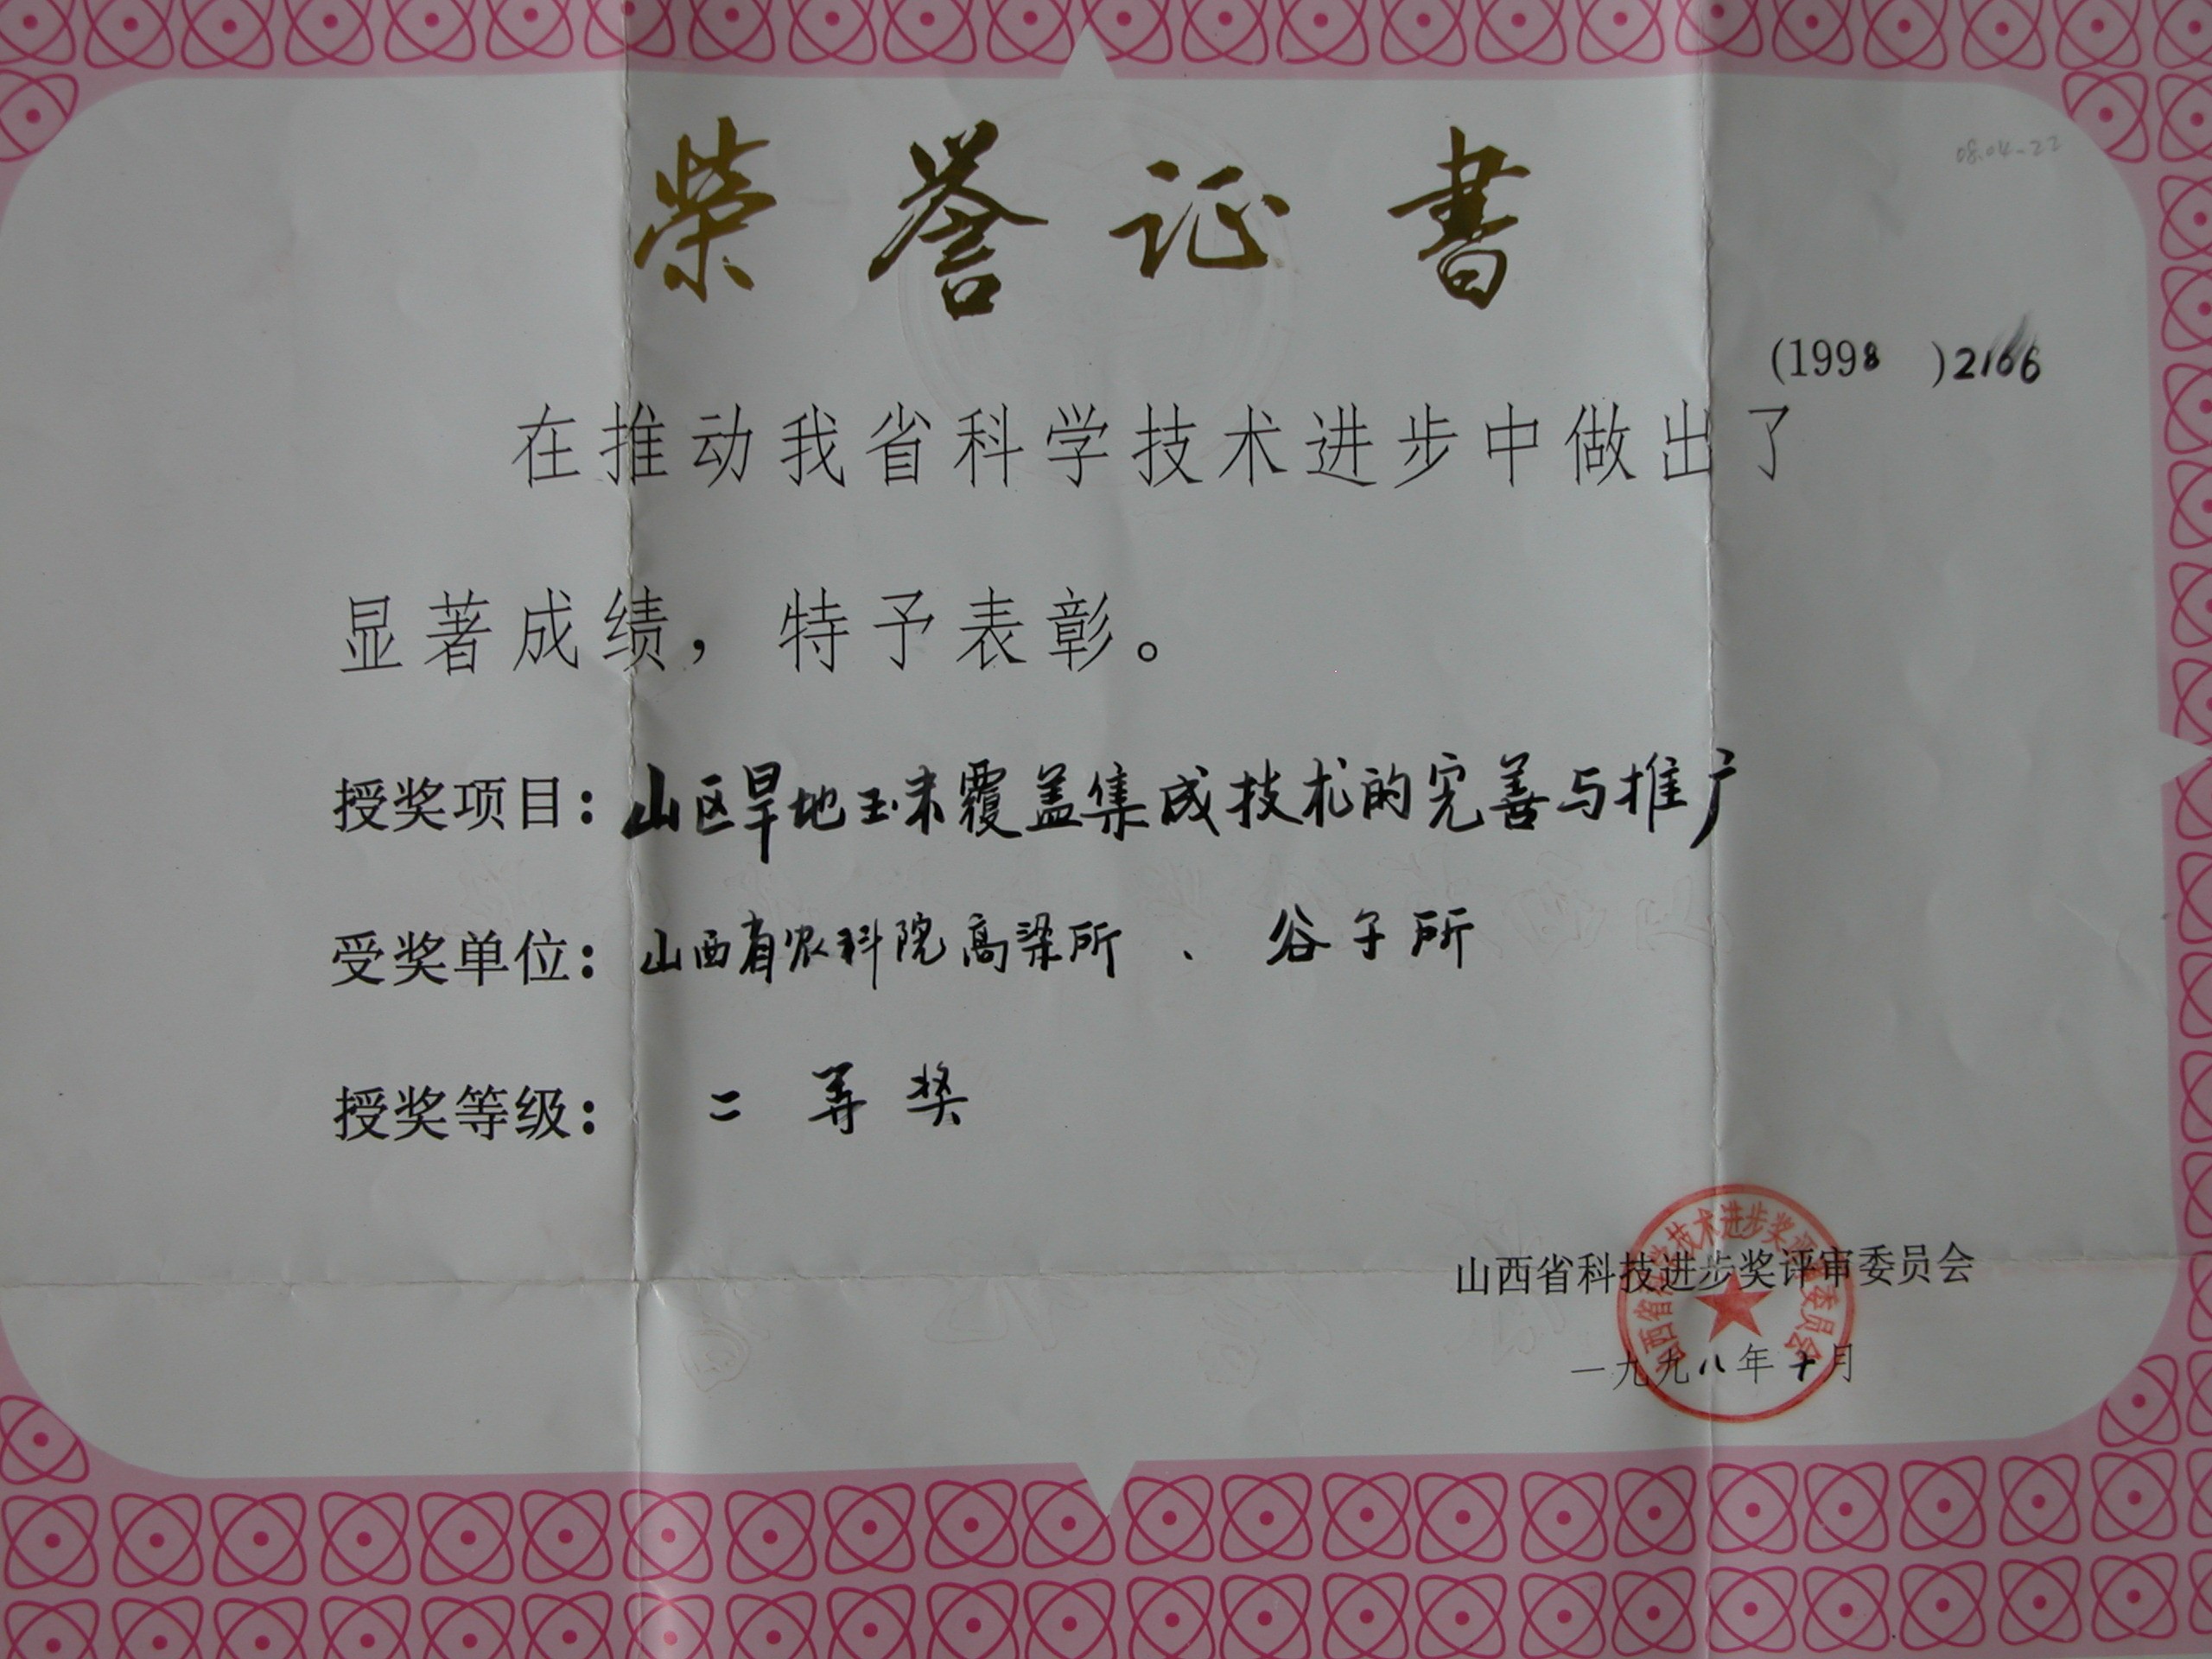 08.04-22
荣誉证书
(1998 )2166
在推动我省科学技术进步中做出了
显著成绩，特予表彰。
授奖项目：山区旱地玉米覆盖集成技术的完善与推广
受奖单位：山西省农科院高粱所、谷子所
授奖等级： 二等奖
山西省科技进步奖评审委员会
一九九八年十月